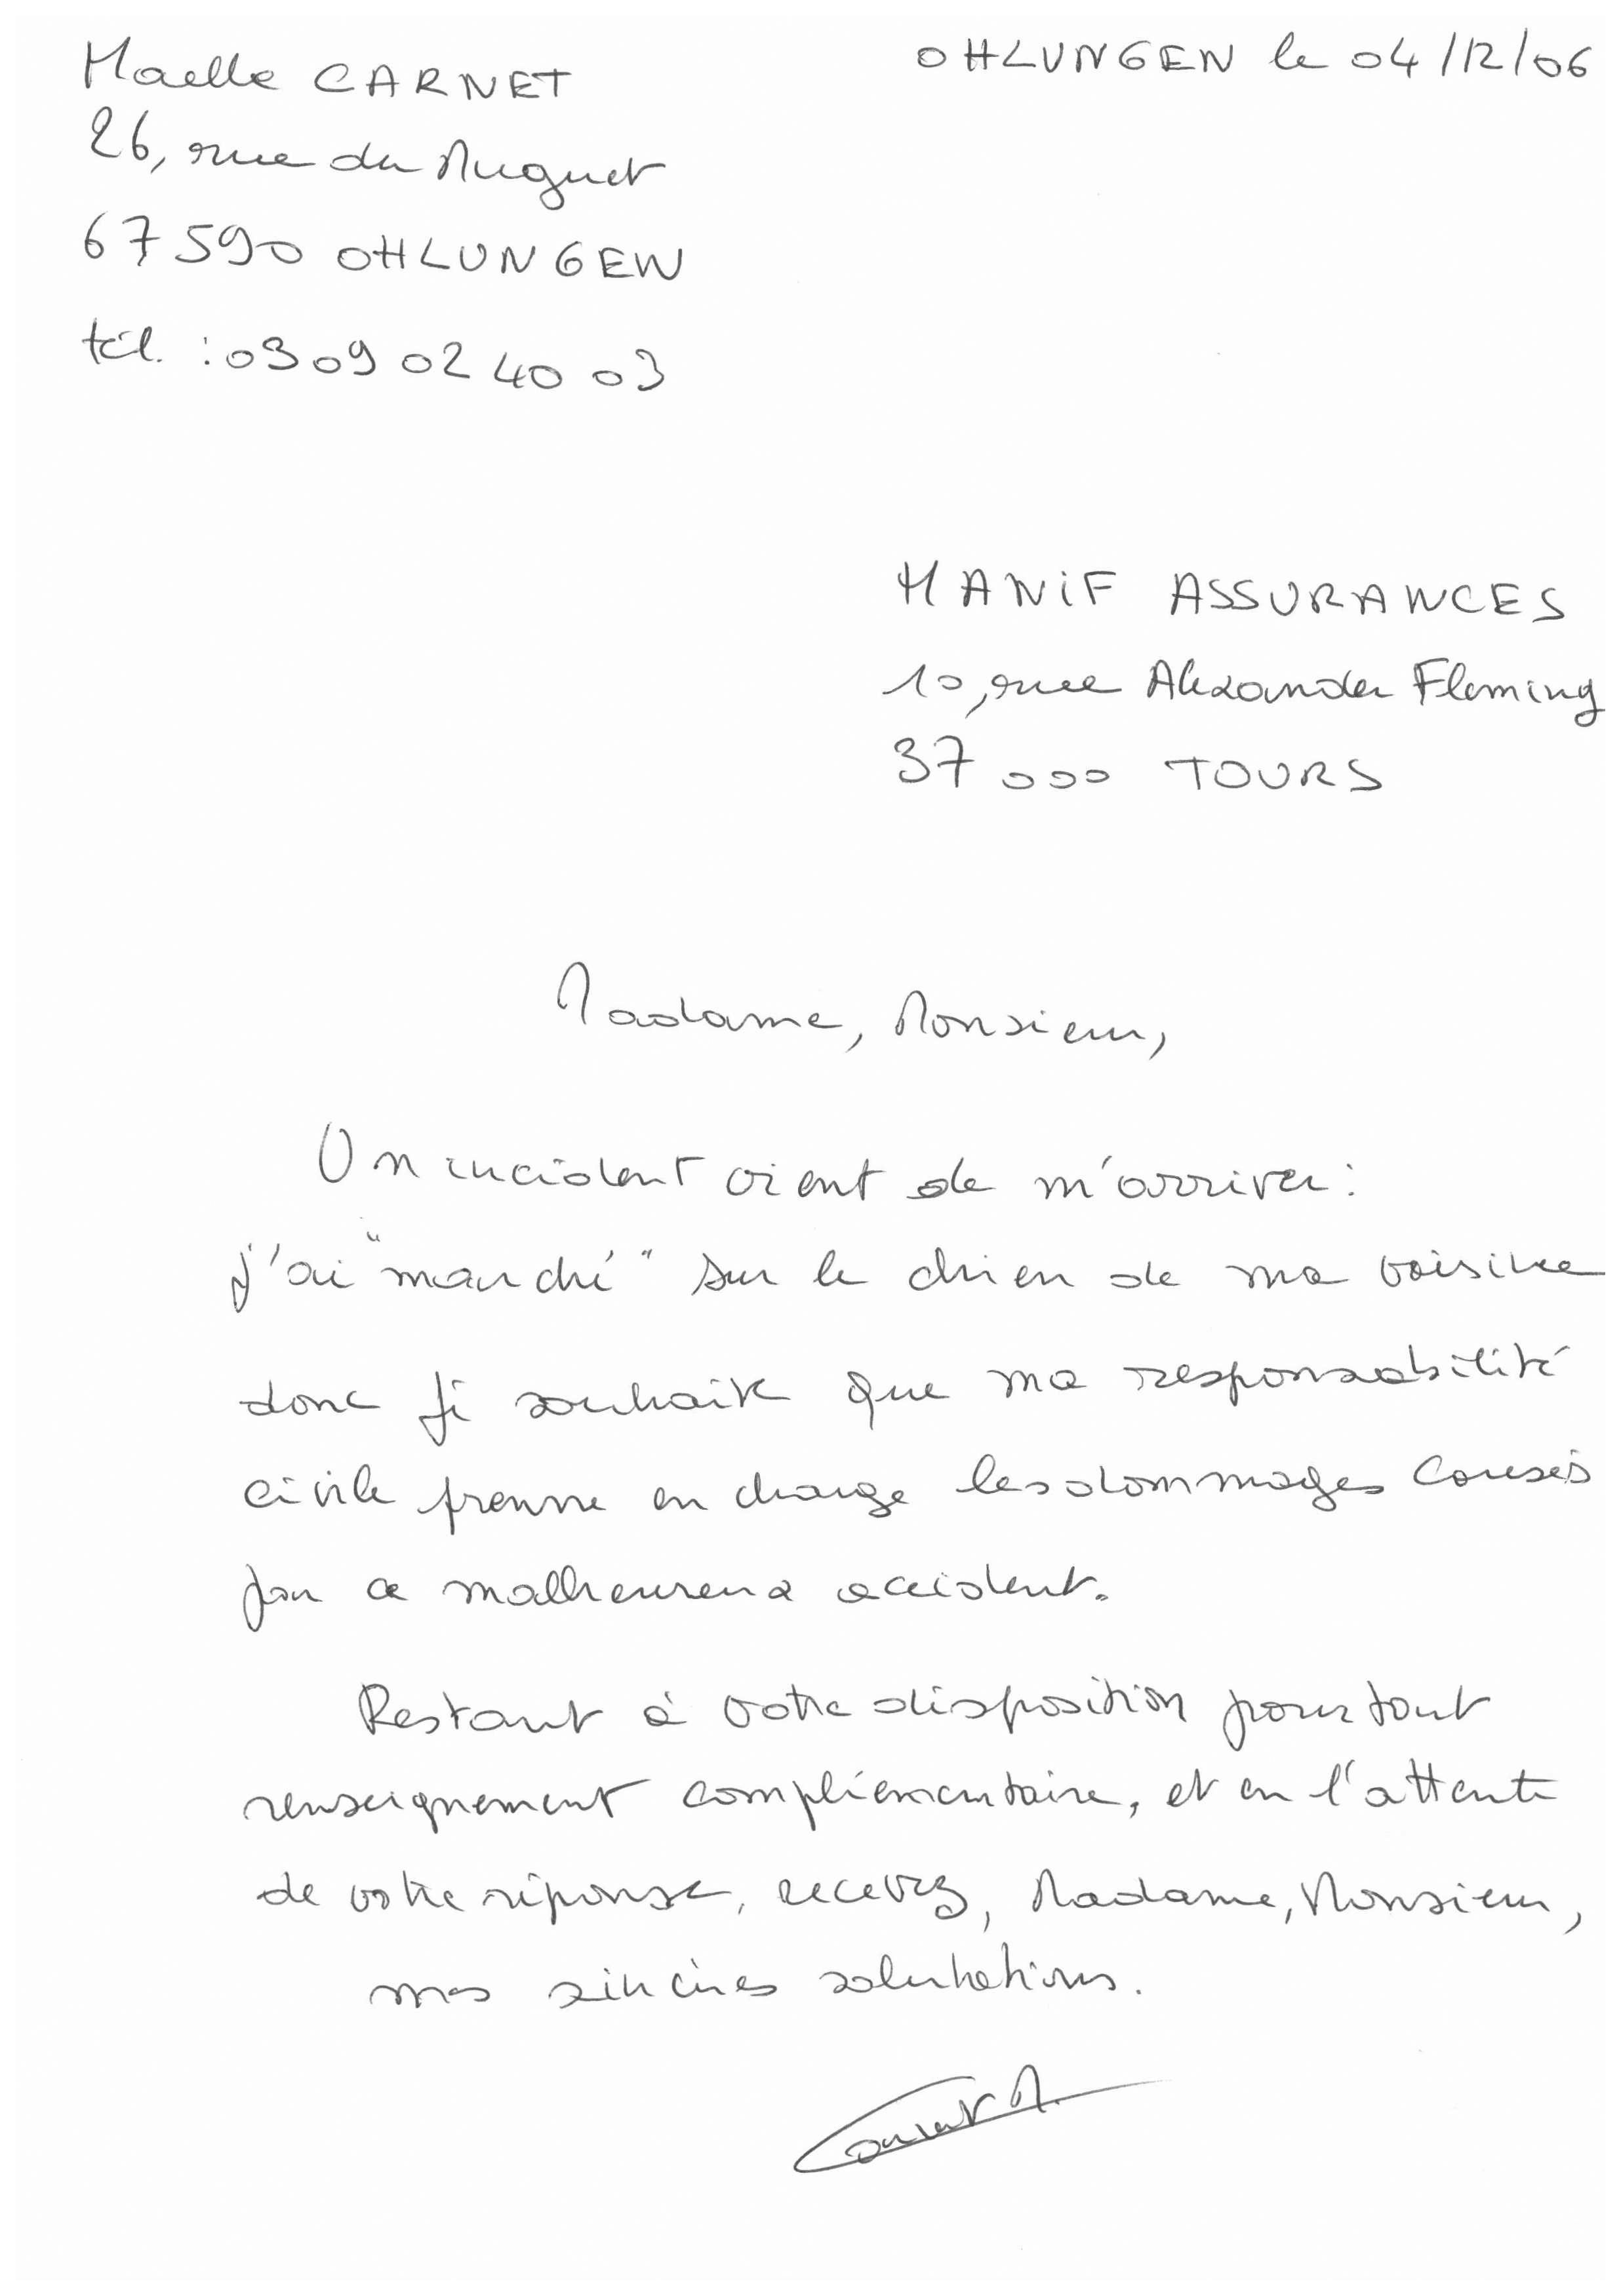 Maelle CARNET
OHLUNGEN le 04/12/06
26, rue du Muguet
67590 OHLUNGEN
tél. : 03 09 02 40 03
MANiF ASSURANCES
10, rue Alexander Fleming
37000 TOURS
Madame, Monsieur,
Un incident vient de m'arriver :
j'ai "marché" sur le chien de ma voisine
donc je souhaite que ma responsabilité
civile prenne en charge les dommages causés
par ce malheureux accident.
Restant à votre disposition pour tout
renseignement complémentaire, et en l'attente
de votre réponse, recevez, Madame, Monsieur,
mes sincères salutations.
Carnet M.